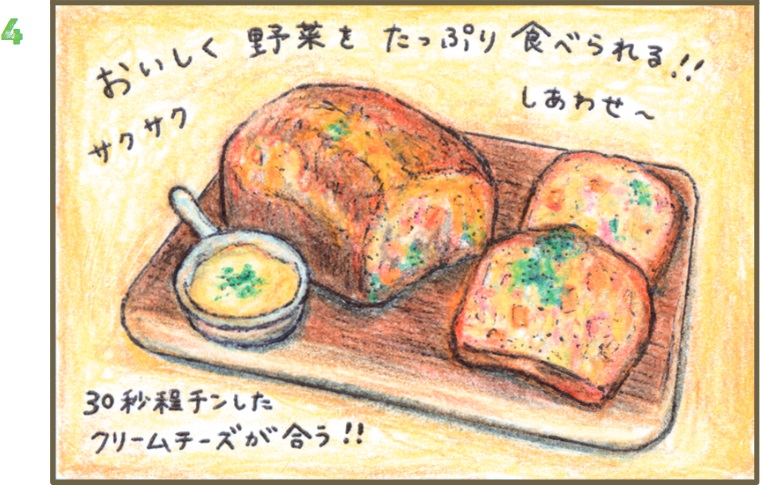 4
おいしく 野菜を たっぷり 食べられる!!
しあわせ〜
サクサク
30秒程チンした
クリームチーズが合う!!